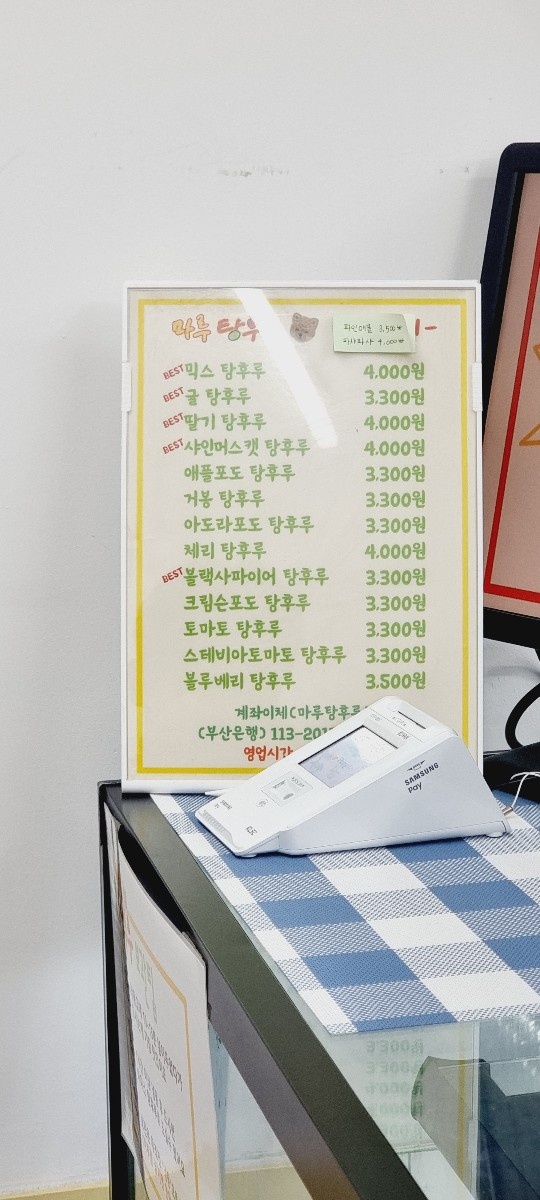 마루 탕후
파인애플 3,500₩
4,000₩
BEST 믹스 탕후루 4.000원
BEST 귤 탕후루 3.300원
BEST 딸기 탕후루 4.000원
BEST 샤인머스캣 탕후루 4.000원
애플포도 탕후루 3.300원
거봉 탕후루 3.300원
아도라포도 탕후루 3.300원
체리 탕후루 4.000원
BEST 블랙사파이어 탕후루 3.300원
크림슨포도 탕후루 3.300원
토마토 탕후루 3.300원
스테비아토마토 탕후루 3.300원
블루베리 탕후루 3.500원
계좌이체(마루탕후루
(부산은행) 113-201
영업시간
SAMSUNG
Pay